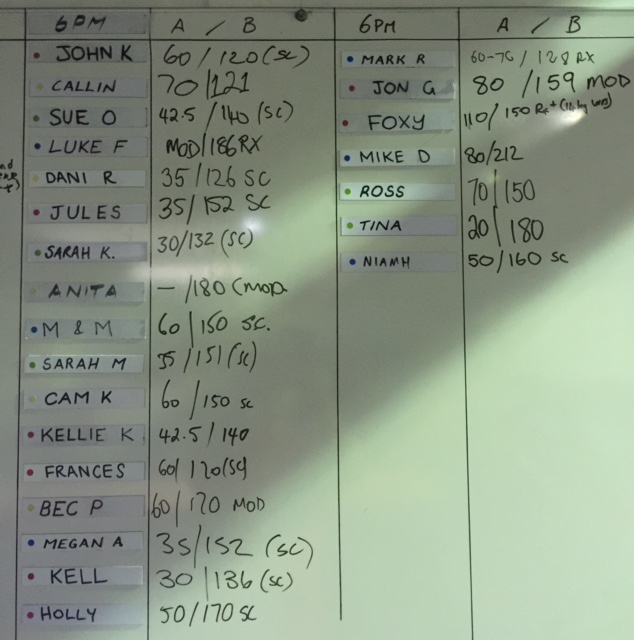 6PM A / B
JOHN K 60/120 (SC)
CALLIN 70/121
SUE O 42.5/140 (SC)
LUKE F MOD/186 RX
DANI R 35/126 SC
JULES 35/152 SC
SARAH K. 30/132 (SC)
ANITA — /180 (MOD.
M & M 60/150 SC.
SARAH M 35/151 (SC)
CAM K 60/150 SC
KELLIE K 42.5/140
FRANCES 60/120 (SC)
BEC P 60/170 MOD
MEGAN A 35/152 (SC)
KELL 30/136 (SC)
HOLLY 50/170 SC
6PM A / B
MARK R 60-70/128 RX
JON G 80/159 MOD
FOXY 110/150 RX+
MIKE D 80/212
ROSS 70/150
TINA 20/180
NIAMH 50/160 SC